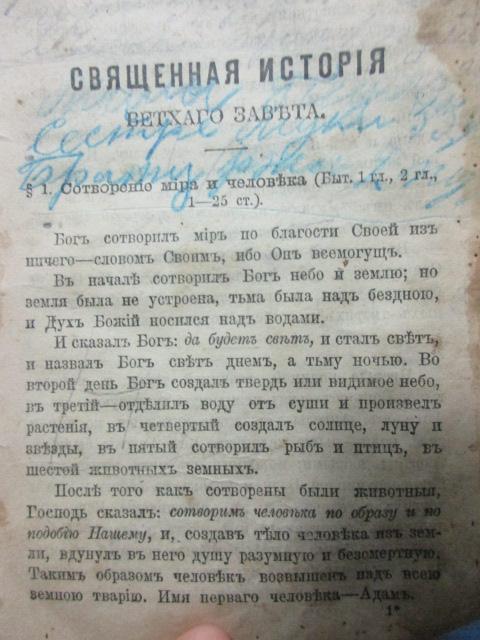 СВЯЩЕННАЯ ИСТОРІЯ
ВЕТХАГО ЗАВѢТА.
Сестре
Брату
§ 1. Сотвореніе міра и человѣка (Быт. 1 гл., 2 гл.,
1—25 ст.).
Богъ сотворилъ міръ по благости Своей изъ
ничего—словомъ Своимъ, ибо Онъ всемогущъ.
Въ началѣ сотворилъ Богъ небо и землю; но
земля была не устроена, тьма была надъ бездною,
и Духъ Божій носился надъ водами.
И сказалъ Богъ: да будетъ свѣтъ, и сталъ свѣтъ,
и назвалъ Богъ свѣтъ днемъ, а тьму ночью. Во
второй день Богъ создалъ твердь или видимое небо,
въ третій—отдѣлилъ воду отъ суши и произвелъ
растенія, въ четвертый создалъ солнце, луну и
звѣзды, въ пятый сотворилъ рыбъ и птицъ, въ
шестой животныхъ земныхъ.
Послѣ того какъ сотворены были животныя,
Господь сказалъ: сотворимъ человѣка по образу и по
подобію Нашему, и, создавъ тѣло человѣка изъ зем-
ли, вдунулъ въ него душу разумную и безсмертную.
Такимъ образомъ человѣкъ возвышенъ надъ всею
земною тварію. Имя перваго человѣка—Адамъ.
1*